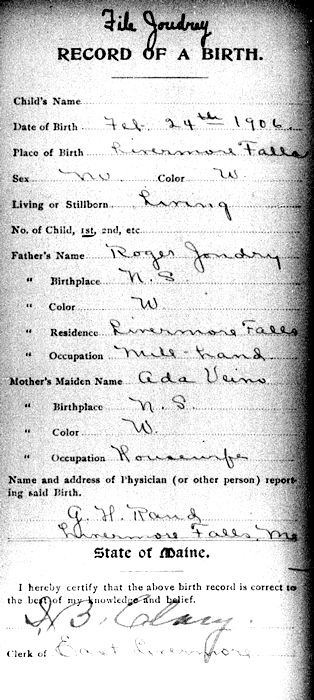 File Joudrey
RECORD OF A BIRTH.
Child's Name
Date of Birth Feb. 24th 1906
Place of Birth Livermore Falls
Sex M Color W.
Living or Stillborn Living
No. of Child, 1st, 2nd, etc.
Father's Name Roger Joudry
" Birthplace N. S.
" Color W.
" Residence Livermore Falls
" Occupation Mill-hand
Mother's Maiden Name Ada Veino
" Birthplace N. S.
" Color W.
" Occupation Housewife
Name and address of Physician (or other person) report-
ing said Birth.
G. H. Rand
Livermore Falls, Me
State of Maine.
I hereby certify that the above birth record is correct to
the best of my knowledge and belief.
Clerk of East Livermore